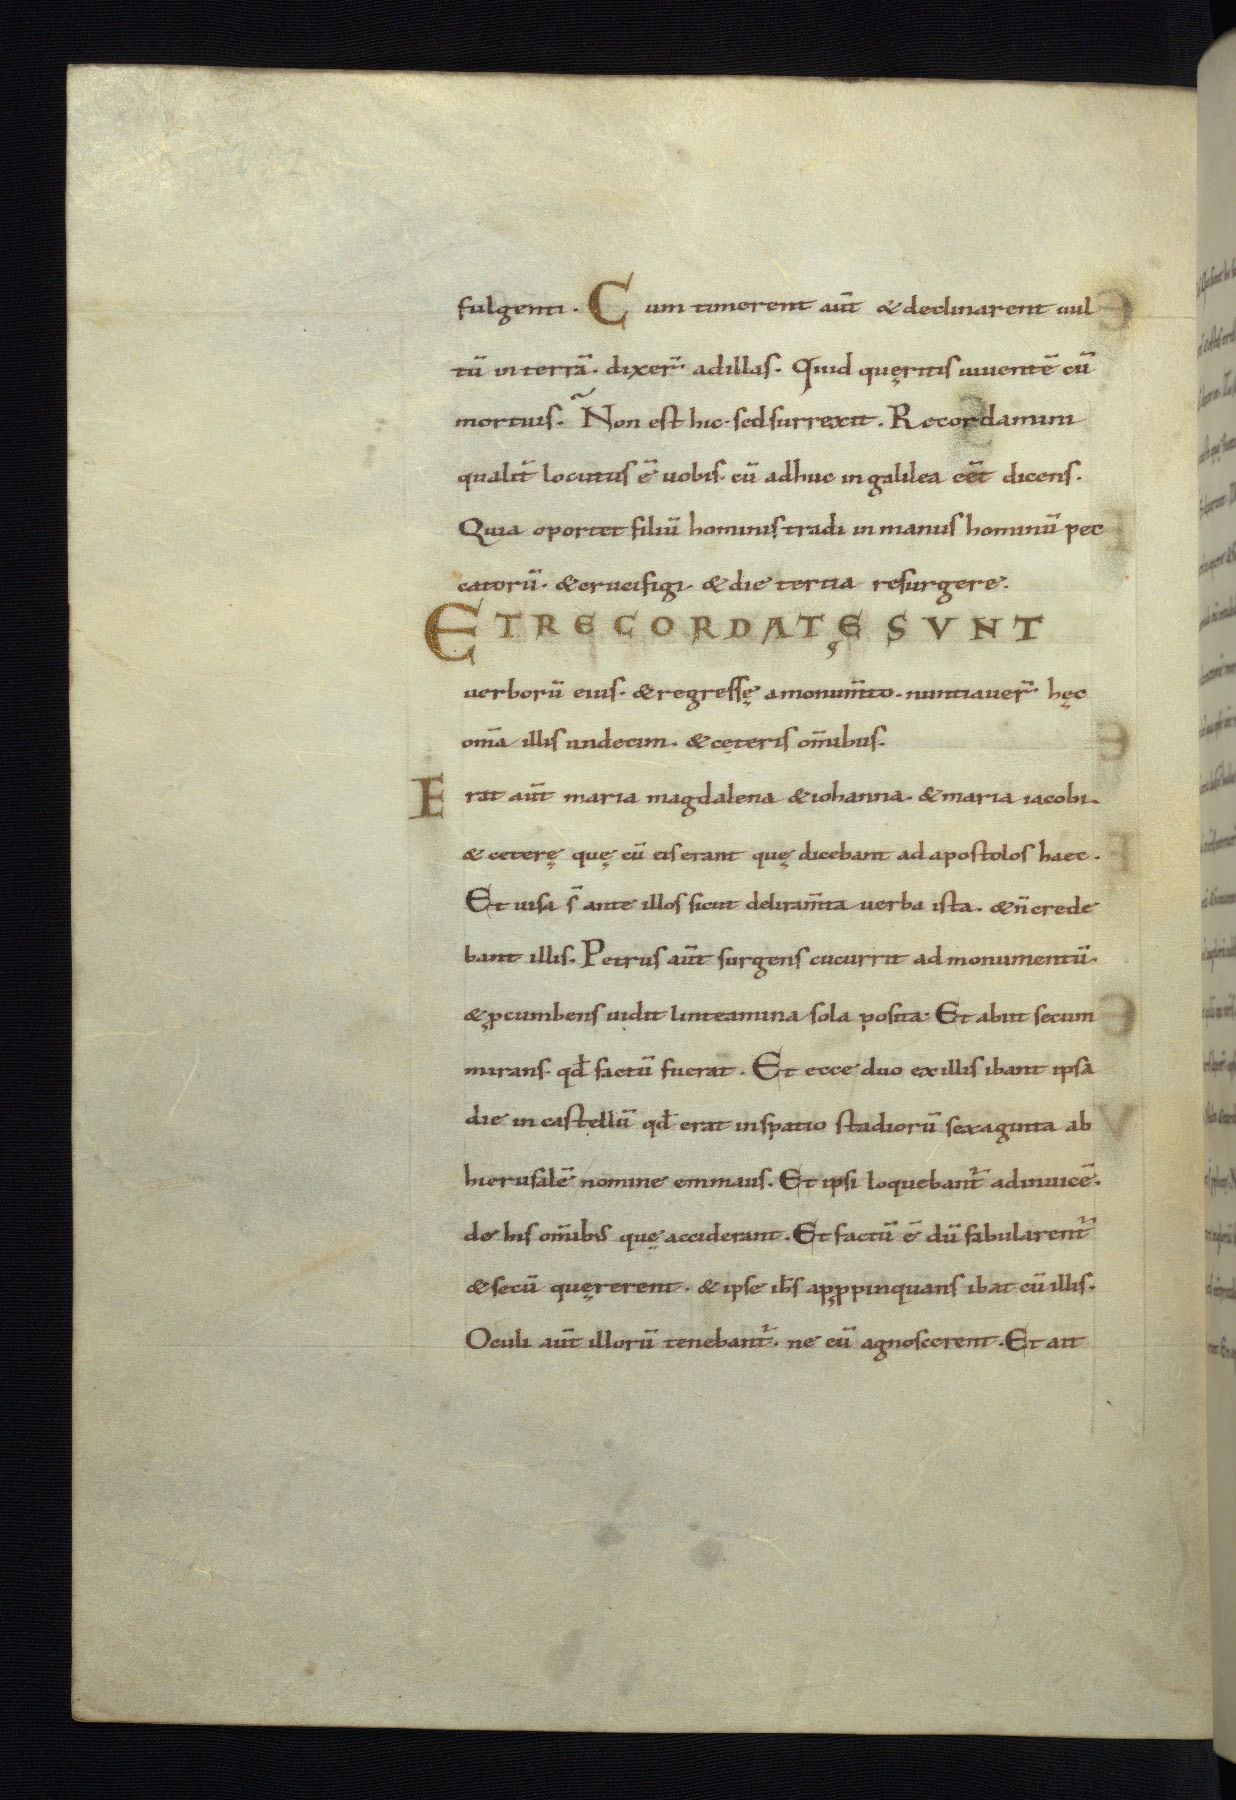 fulgenti. Cum timerent aut̄ & declinarent uul
tū in terrā. dixer̄ ad illas. Quid quęritis uiuentē cū
mortuis. Non est hic. sed surrexit. Recordamini
qualit̄ locutus ē uobis. cū adhuc in galilea eēt dicens.
Quia oportet filiū hominis tradi in manus hominū pec
catorū. & crucifigi. & die tertia resurgere.
ET RECORDATĘ SVNT
uerborū eius. & regressę a monum̄to. nuntiauer̄ hęc
om̄a illis undecim. & cęteris om̄ibus.
Erat aut̄ maria magdalena & iohanna. & maria iacobi.
& ceterę quę cū eis erant quę dicebant ad apostolos haec.
Et uisa s̄ ante illos sicut deliram̄ta uerba ista. & n̄ crede
bant illis. Petrus aut̄ surgens cucurrit ad monumentū.
& ꝓcumbens uidit linteamina sola posita. Et abiit secum
mirans. qd̄ factū fuerat. Et ecce duo ex illis ibant ipsa
die in castellū qd̄ erat in spatio stadiorū sexaginta ab
hierusalē nomine emmaus. Et ipsi loquebant̄ adinuicē.
de his om̄ibus quę acciderant. Et factū ē dū fabularent̄
& secū quęrerent. & ipse ih̄s apꝓpinquans ibat cū illis.
Oculi aut̄ illorū tenebant̄. ne eū agnoscerent. Et ait